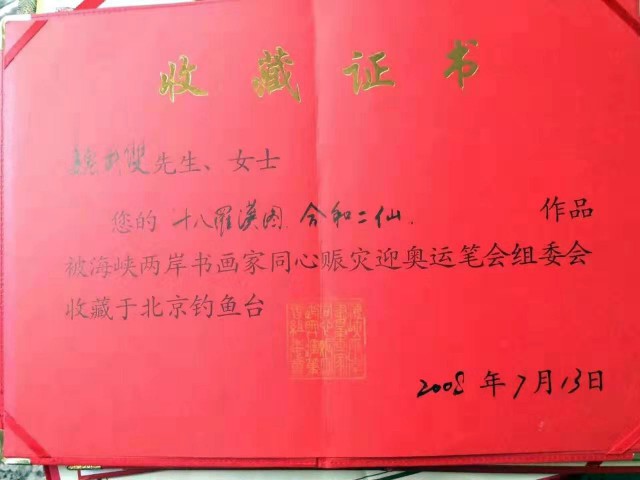 收藏证书
先生、女士
您的 十八羅漢图 合和二仙. 作品
被海峡两岸书画家同心赈灾迎奥运笔会组委会
收藏于北京钓鱼台
2008 年 7 月 13 日